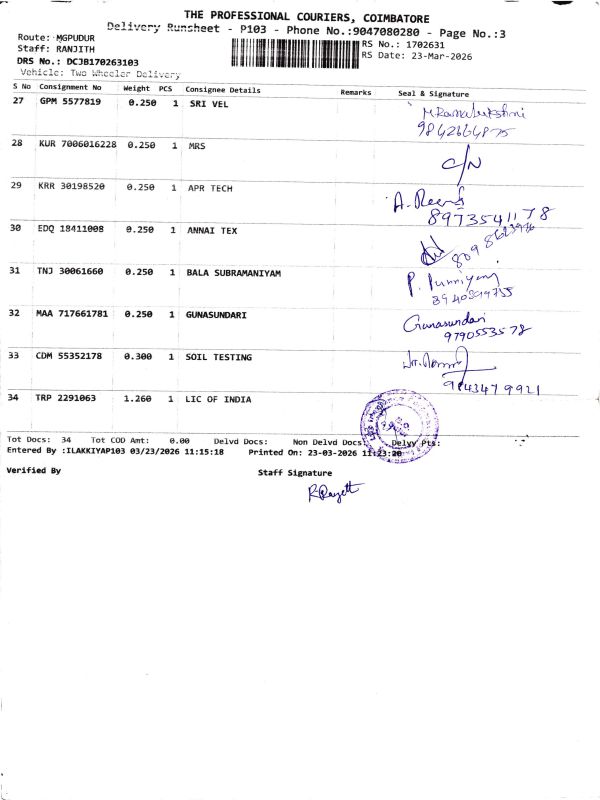 THE PROFESSIONAL COURIERS, COIMBATORE
Delivery Runsheet - P103 - Phone No.:9047080280 - Page No.:3
Route: MGPUDUR
RS No.: 1702631
Staff: RANJITH
RS Date: 23-Mar-2026
DRS No.: DCJB170263103
Vehicle: Two Wheeler Delivery
S No Consignment No Weight PCS Consignee Details Remarks Seal & Signature
27 GPM 5577819 0.250 1 SRI VEL
9842664875
28 KUR 7006016228 0.250 1 MRS C/N
29 KRR 30198520 0.250 1 APR TECH A.
8973541178
30 EDQ 18411008 0.250 1 ANNAI TEX
31 TNJ 30061660 0.250 1 BALA SUBRAMANIYAM P.
32 MAA 717661781 0.250 1 GUNASUNDARI Gunasundari
9790553578
33 CDM 55352178 0.300 1 SOIL TESTING
9843479921
34 TRP 2291063 1.260 1 LIC OF INDIA
Tot Docs: 34 Tot COD Amt: 0.00 Delvd Docs: Non Delvd Docs: Delvy Pts:
Entered By :ILAKKIYAP103 03/23/2026 11:15:18 Printed On: 23-03-2026 11:23:20
Verified By Staff Signature